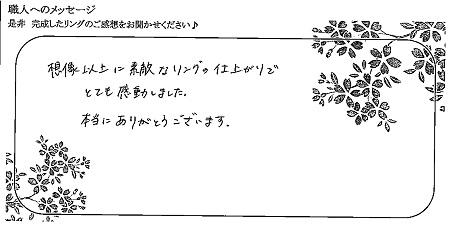 職人へのメッセージ
是非 完成したリングのご感想をお聞かせください♪
想像以上に素敵なリングの仕上がりで
とても感動しました。
本当にありがとうございます。